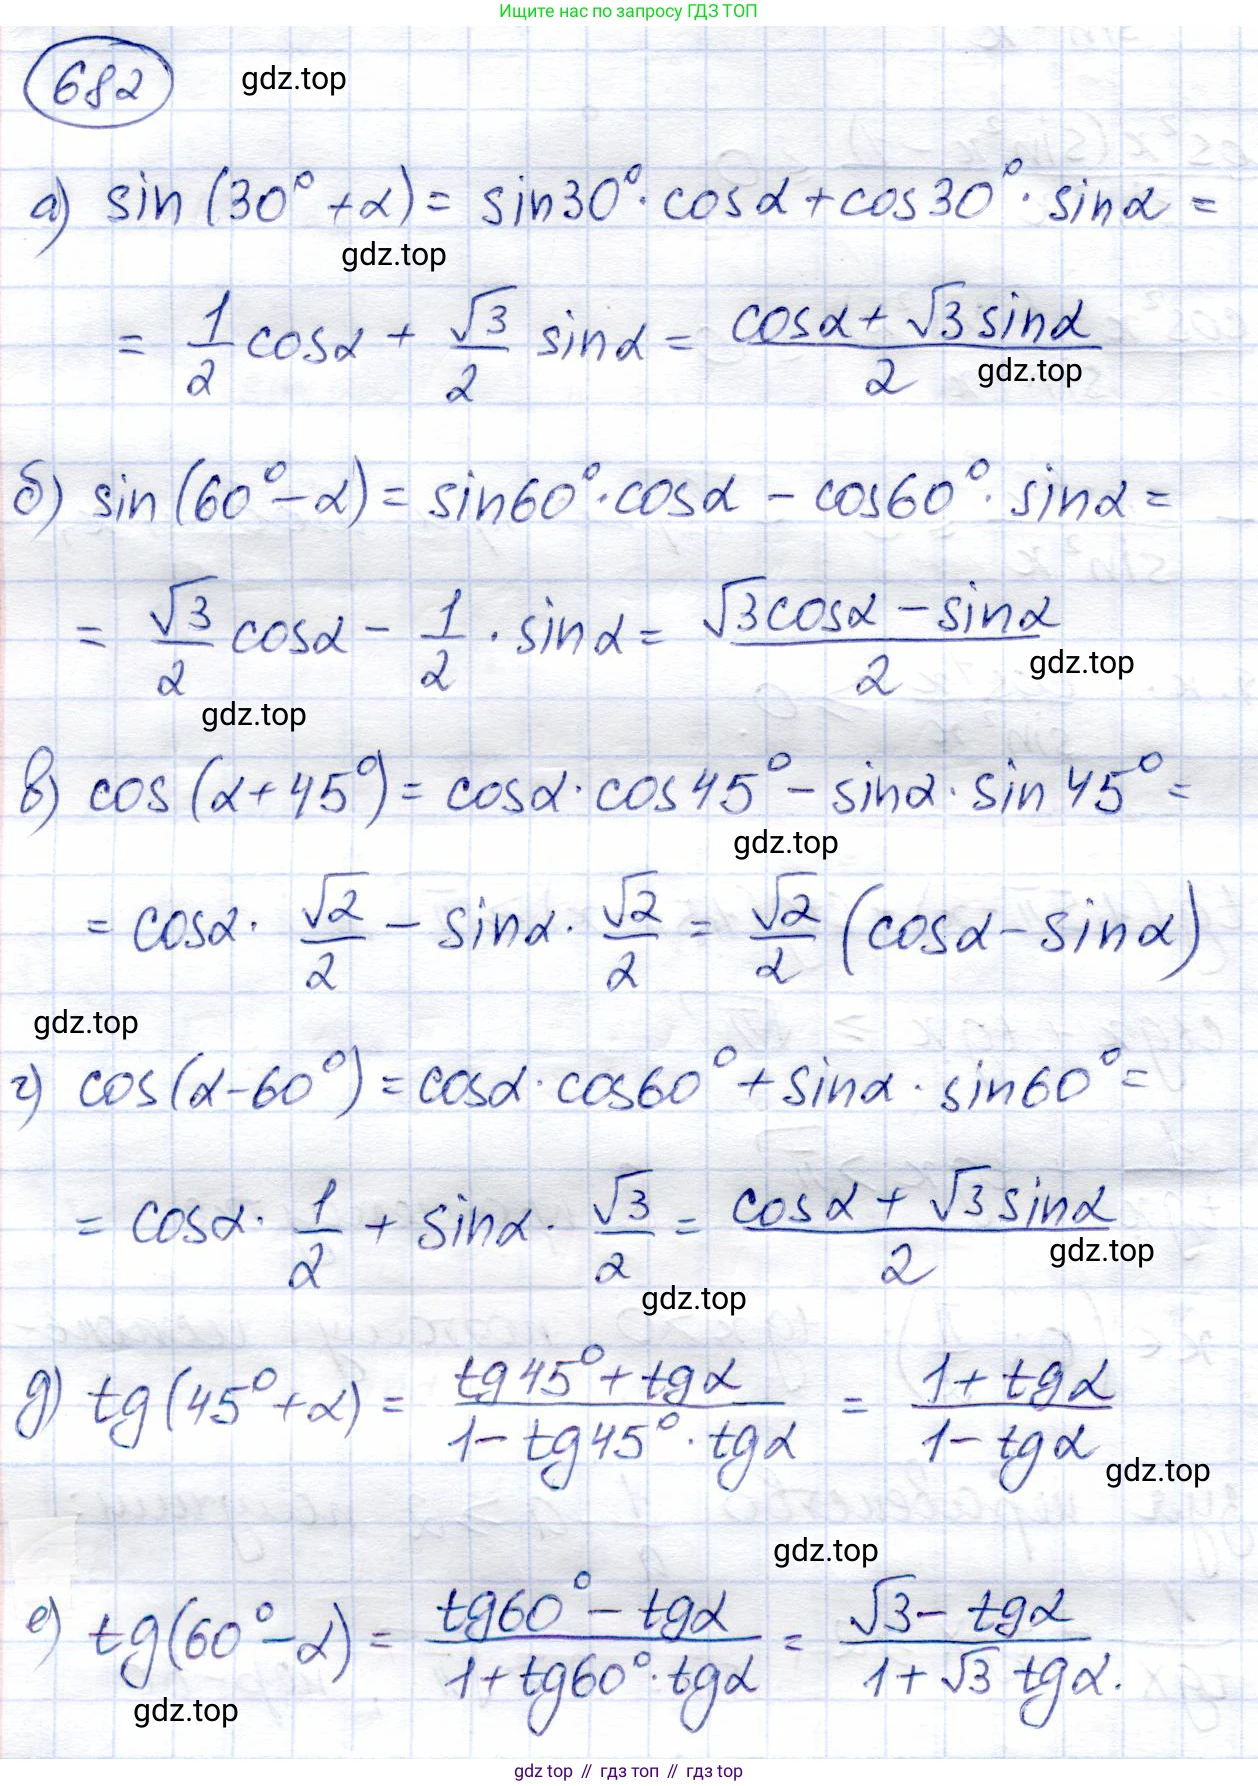 Ищите нас по запросу ГДЗ ТОП
682
gdz.top
а) sin(30° + α) = sin30° · cosα + cos30° · sinα =
gdz.top
= 1/2 cosα + √3/2 sinα = (cosα + √3 sinα)/2
gdz.top
б) sin(60° − α) = sin60° · cosα − cos60° · sinα =
= √3/2 cosα − 1/2 · sinα = (√3cosα − sinα)/2
gdz.top
gdz.top
в) cos(α + 45°) = cosα · cos45° − sinα · sin45° =
gdz.top
= cosα · √2/2 − sinα · √2/2 = √2/2 (cosα − sinα)
gdz.top
г) cos(α − 60°) = cosα · cos60° + sinα · sin60° =
= cosα · 1/2 + sinα · √3/2 = (cosα + √3 sinα)/2
gdz.top
gdz.top
д) tg(45° + α) = (tg45° + tgα)/(1 − tg45° · tgα) = (1 + tgα)/(1 − tgα)
gdz.top
gdz.top
е) tg(60° − α) = (tg60° − tgα)/(1 + tg60° · tgα) = (√3 − tgα)/(1 + √3 tgα).
gdz.top
gdz top // гдз топ // гдз top